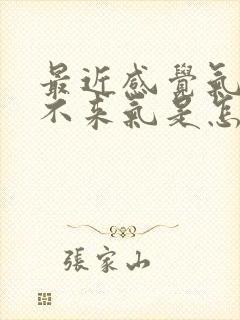 最近感覺氣
不来氣是怎
張家山